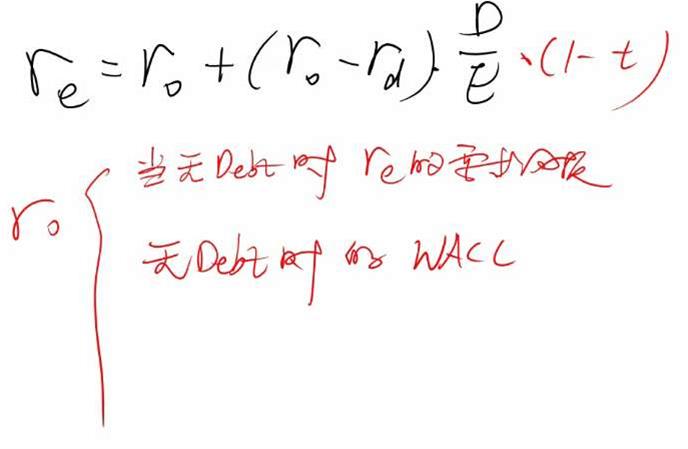 re = r₀ + (r₀ - rd) · D/E · (1 - t)
r₀ { 当无Debt时 re的要求回报
无Debt时的 WACC